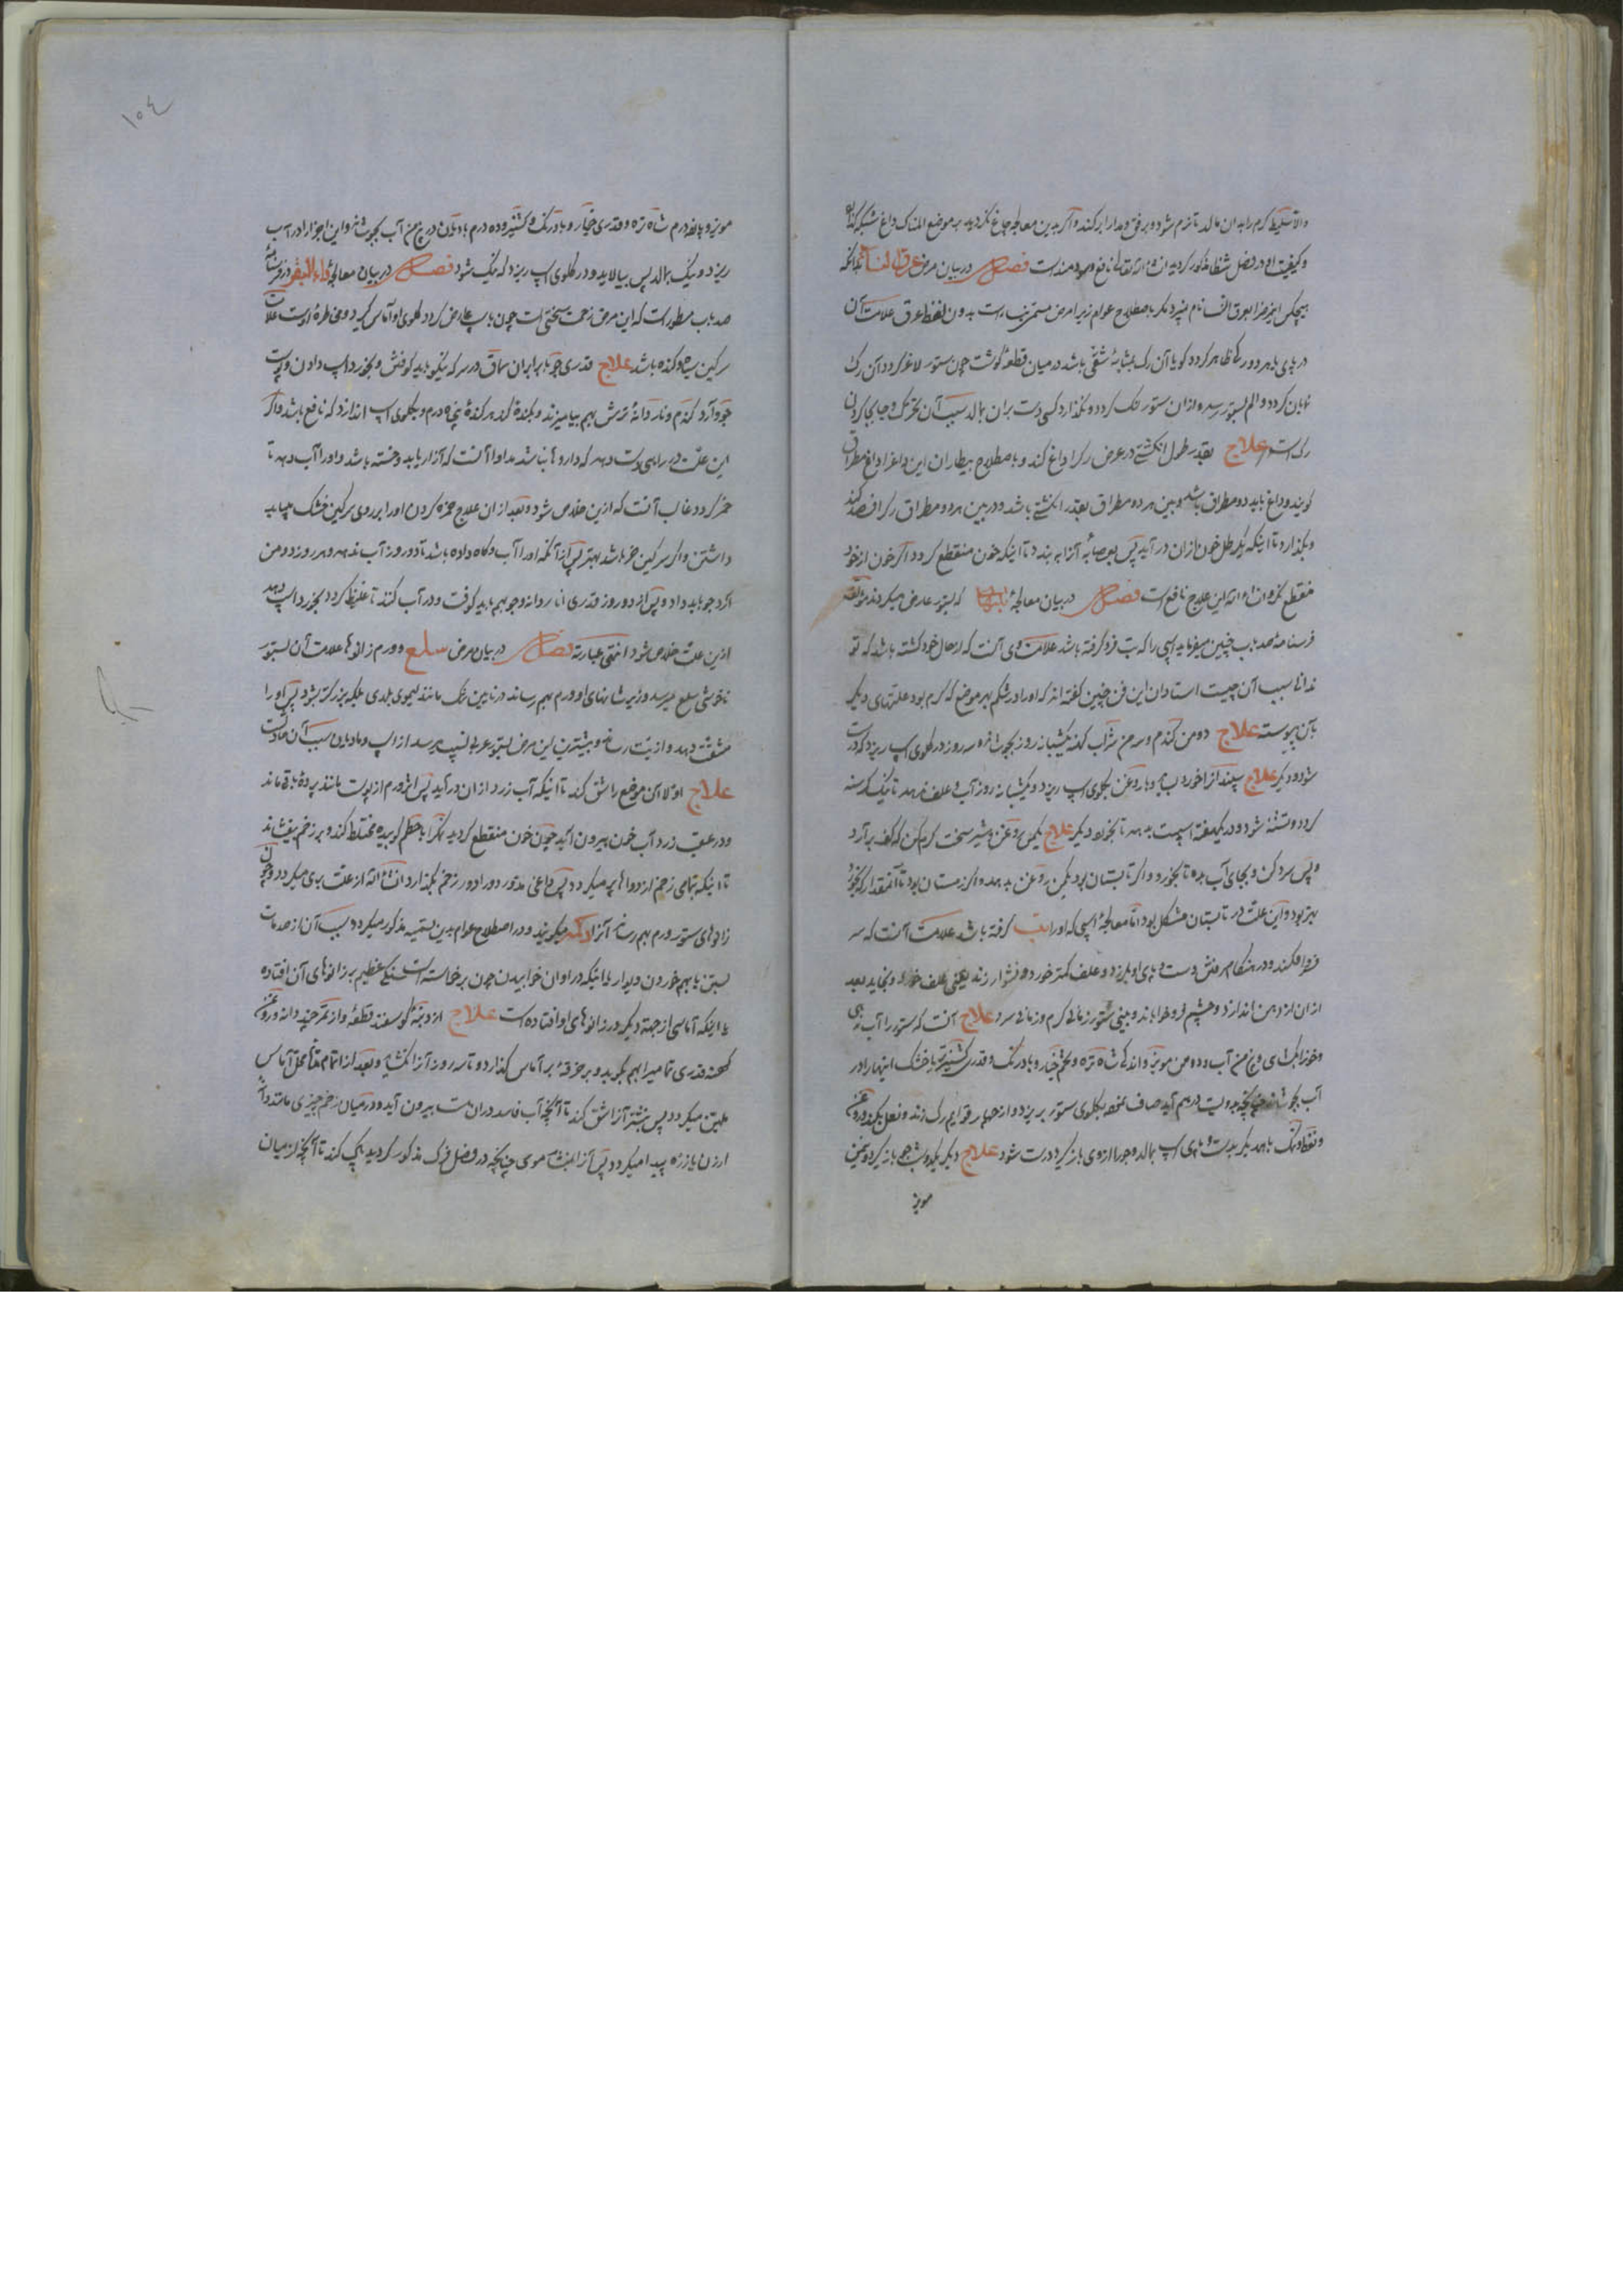 والا سلیط گرم را بدان مالد تا نرم شود و برفق و مدارا بر کند و اگر بدین معالجه چاغ نگردید بر موضع المناک داغ شبکه کذارد
و کیفیت او در فصل شظا مذکور گردید ان شاء الله تعالی نافع و سودمند است فصل در بیان مرض عرق النسا بدانکه
هیچکس این مرض را بعرق النسا نام نبرد مگر باصطلاح عوام زیرا مرض مستمر بدون لفظ عرق علامت آن
در پای یا هر دو رگی ظاهر گردد گویا آن رگ بمثابهٔ شقی باشد در میان قطعهٔ گوشت چون ستور لاغر گردد آن رگ
نمایان گردد و الم بستور رسد و ازان ستور لنگ گردد و نگذارد کسی دست بران مالد سبب آن تحرک و جابجا کردن
رگ است علاج بقدر طول انگشتی در عرض رگ را داغ کند و باصطلاح بیطاران این داغ را داغ مطراق
گویند و داغ باید دو مطراق باشد و بین هر دو مطراق بقدر انگشتی باشد و در بین هر دو مطراق رگ را فصد کند
و بگذارد تا اینکه یکرطل خون ازان در آید پس بعصابه آنرا به بندد تا اینکه خون منقطع گردد اگر خون از خود
منقطع نگردد ان شاء الله این علاج نافع است فصل در بیان معالجهٔ تبها که بستور عارض میگردند مؤلف
فرسنامه صد باب چنین میفرماید اسپی را که تب فرو گرفته باشد علامت وی آنست که از حال خود گشته باشد که تو
ندانی سبب آن چیست استادان این فن چنین گفته اند که او را در شکم بهر موضع که گرم بود علتهای دیگر
بآن پیوسته علاج دو من گندم و سه من شراب کهنه یکشبانه روز بجوشانند و سه روز در گلوی اسپ ریزد که درست
شود و دیگر علاج سپندان را خورد بساید و با روغن بگلوی اسپ ریزد و یکشبانه روز آب و علف ندهد تا نیک گرسنه
گردد و تشنه شود و در یکهفته اسپست بدهد تا بخورد دیگر علاج یکمن روغن و شیر سخت گرم کن که کف بر آرد
و پس سرد کن و بجای آب بده تا بخورد و اگر تابستان بود یکمن روغن بدهد و اگر زمستان بود تا آنمقدار که بخورد
بهتر بود و این علت در تابستان مشکل بود اما معالجهٔ اسپی که او را تب گرفته باشد علامت آنست که سر
فرو افکند و در هنگام رفتن دست و پای او بلرزد و علف کمتر خورد و نشوار زند یعنی علف خورد و بخاید بعد
ازان از دهن اندازد و چشم فرو خواباند و بینی ستور زمانی گرم و زمانی سرد علاج آنست که ستور را آب دهی
و خون بکشای و پنج من آب و ده من مویز و اندکی شاه تره و تخم خیار و بادرنگ و قدری کشنیز تر یا خشک اینها را در
آب بجوشاند چنانچه بدویست درهم آید صاف نموده بگلوی ستور بریزد و از چهار قوایم رگ زند و نعل بکند و روغن
و نفط و نمک با همدیگر بدست و پای اسپ بمالد و جو را از وی باز گیرد درست شود علاج دیگر یکدو شب جو باز گیرد و یکمن
مویز
۱۰٤
مویز و پانزده درم شاه تره و قدری خیار و بادرنگ و کشنیز و ده درم بادیان در پنج من آب بجوشاند و این اجزا را در آب
ریزد و نیک بمالد پس بپالاید و در گلوی اسپ ریزد که نیک شود فصل در بیان معالجهٔ داء البقر در فرسنامهٔ
صد باب مسطور است که این مرض زحمت سختی است چون باسپ عارض گردد گلوی او آماس گیرد و مخاطره است علامت آن
سرگین سیاه و گنده باشد علاج قدری جو با برابر آن سماق در سرکه نیکو باید کوفتن و بخورد اسپ دادن و پوست
جو و آرد گندم و نار دانهٔ ترش بهم بیامیزند و بگنده کند هر گندهٔ پنجاه درم و بگلوی اسپ اندازد که نافع باشد و اگر
این علت در راهی دست دهد که داروها نباشد مداوا آنست که آزار یابد و خسته باشد و او را آب دهد تا
خر گردد غالب آنست که ازین خلاص شود و بعد ازان علاج حمزه کردن او را بر روی سرگین خشک بباید
داشتن و اگر سرگین خر باشد بهتر پس از آنکه او را آب و کاه داده باشد تا دو روز آب ندهد و هر روز دو من
آرد جو باید داد و پس از دو روز قدری انار دانه و جو بهم باید کوفت و در آب کنند تا غلیظ گردد بخورد اسپ دهد
ازین علت خلاص شود انتهی عبارته فصل در بیان مرض سلع و ورم زانوها علامت آن بستور
ناخوشی سلع میرسد و زیر شانهای او ورم بهم رساند در پایین تنگ مانند لیموی بلدی بلکه بزرگتر بشود پس او را
مشقت دهد و اذیت رساند و بیشترین این مرض بستور عربی نسب میرسد از اسپ و مادیان سبب آن حادث
علاج اولا آن موضع را شق کند تا اینکه آب زرد ازان در آید پس اثر ورم از پوست مانند پردهٔ باقی ماند
و در عقب زرد آب خون بیرون آید چون خون منقطع گردید نمک را با حنظل کوبیده مختلط کند و بر زخم بیفشاند
تا اینکه تمامی زخم از دواها پر میگردد پس داغی مدور دورادور زخم بگذارد ان شاء الله از علت بری میگردد و چون
زانوهای ستور ورم بهم رساند آنرا دکمه میگویند و در اصطلاح عوام بدین تسمیه مذکور میگردد سبب آن از صدمات
بستن یا بهم خوردن دیوار یا اینکه در اوان خوابیدن چون برخاسته است سنگی عظیم بر زانوهای آن افتاده
یا اینکه آماسی از جهة دیگر در زانوهای او افتاده است علاج از دنبهٔ گوسفند قطعهٔ و از تمر چند دانه و روغن
کهنه قدری تمامی را بهم بکوبد و بر خرقه بر آماس گذارد و تا سه روز آنرا نگشاید و بعد از اتمام مدت محل آماس
ملین میگردد پس بنشتر آنرا شق کند تا آنچه آب فاسد دران است بیرون آید و در میان زخم چیزی مانند دانهٔ
ارزن یا زره پیدا میگردد پس آنرا بفتیلهٔ موی چنانچه در فصل فرک مذکور گردید پاک کند تا آنچه از میان